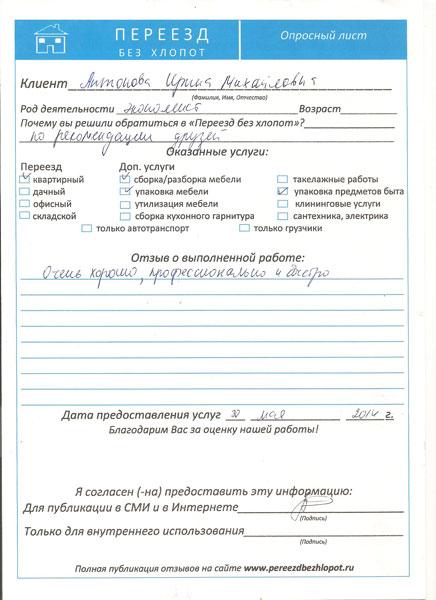 ПЕРЕЕЗД
БЕЗ ХЛОПОТ
Опросный лист
Клиент Антонова Ирина Михайловна
(Фамилия, Имя, Отчество)
Род деятельности экономист Возраст
Почему вы решили обратиться в «Переезд без хлопот»?
по рекомендации друзей
Оказанные услуги:
Переезд Доп. услуги
квартирный сборка/разборка мебели такелажные работы
дачный упаковка мебели упаковка предметов быта
офисный утилизация мебели клининговые услуги
складской сборка кухонного гарнитура сантехника, электрика
только автотранспорт только грузчики
Отзыв о выполненной работе:
Очень хорошо, профессионально и быстро
Дата предоставления услуг 30 мая 2014 г.
Благодарим Вас за оценку нашей работы!
Я согласен (-на) предоставить эту информацию:
Для публикации в СМИ и в Интернете
(Подпись)
Только для внутреннего использования
(Подпись)
Полная публикация отзывов на сайте www.pereezdbezhlopot.ru